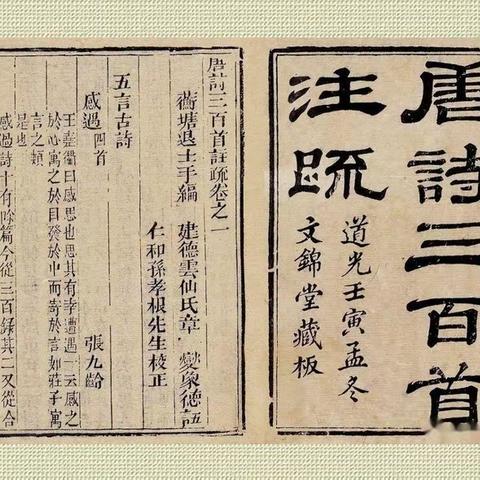 唐詩三百首
注疏
道光壬寅孟冬
文錦堂藏板
唐詩三百首註疏卷之一
蘅塘退士手編 建德雲仙氏章 燮象德
仁和孫孝根先生校正
五言古詩
感遇四首 張九齡
王堯衢曰感思也思其有幸遭遇一云感之
於心寓之於目發於中而寄於言如莊子寓
言之類
是也
感遇詩十有餘篇今從三百錄其二又從合